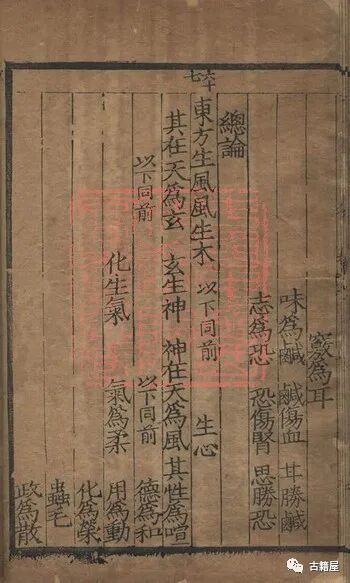 竅為耳
味為鹹 鹹傷血 甘勝鹹
志為恐 恐傷腎 思勝恐
總論
六十七
東方生風風生木 以下同前 生心
其在天為玄 玄生神 神在天為風 其性為暄
以下同前 以下同前 德為和
化生氣 氣為柔 用為動
化為榮
蟲毛
政為散
古籍屋